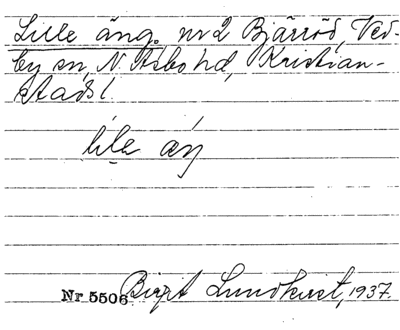 Lille äng. nr 2 Bjärröd, Ved-
by sn, N. Åsbo hd, Kristian-
stads l.
lile äŋ
Nr 5506 Birgit Lundkvist, 1937.